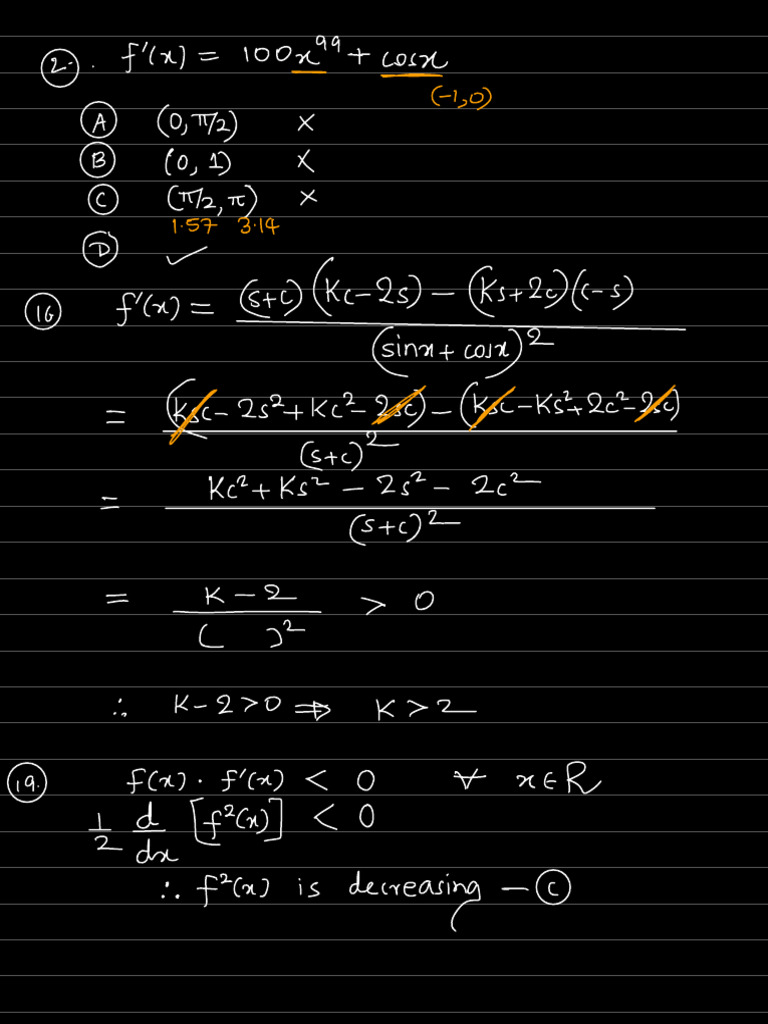 2. f'(x) = 100x⁹⁹ + cosx
(-1,0)
A (0, π/2) ×
B (0, 1) ×
C (π/2, π) ×
1.57 3.14
D ✓
16 f'(x) = (s+c)(Kc-2s) - (Ks+2c)(c-s)
(sinx + cosx)²
= (Ksc - 2s² + Kc² - 2sc) - (Ksc - Ks² + 2c² - 2sc)
(s+c)²
= Kc² + Ks² - 2s² - 2c²
(s+c)²
= K-2 > 0
( )²
∴ K-2>0 ⇒ K>2
19. f(x) · f'(x) < 0 ∀ x∈R
1/2 d/dx [f²(x)] < 0
∴ f²(x) is decreasing - C